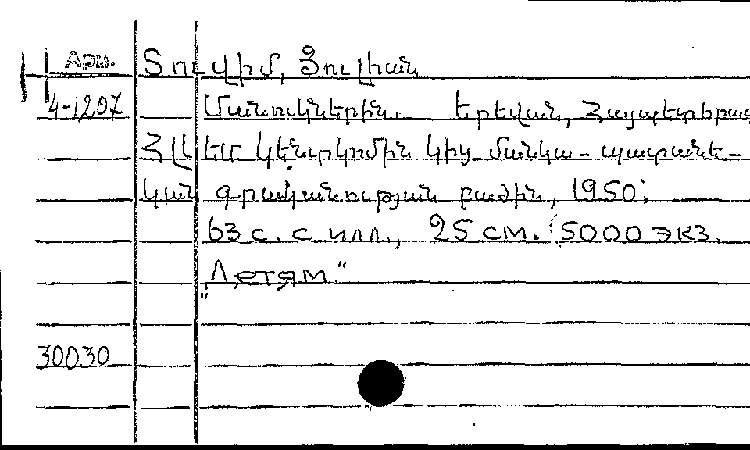 Арм. Տուվիմ, Յուլիան
4-1297 Մանուկներին. Երեվան, Հայպետհրատ
ՀԼԿԵՄ կենտկոմին կից մանկա-պատանե-
կան գրականության բաժին, 1950;
63 с. с илл., 25 см. 5000 экз.
„Детям“
30030